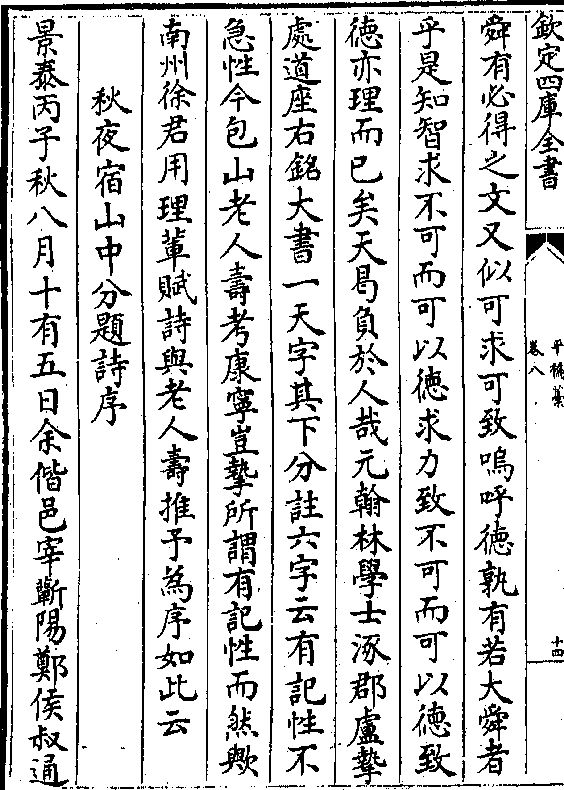 欽定四庫全書
平橋藁
卷八
十四
舜有必得之文又似可求可致嗚呼德孰有若大舜者
乎是知智求不可而可以德求力致不可而可以德致
德亦理而已矣天曷負於人哉元翰林學士涿郡盧摯
處道座右銘大書一天字其下分註六字云有記性不
急性今包山老人壽考康寧豈摯所謂有記性而然歟
南州徐君用理輩賦詩與老人壽推予為序如此云
秋夜宿山中分題詩序
景泰丙子秋八月十有五日余偕邑宰蘄陽鄭侯叔通